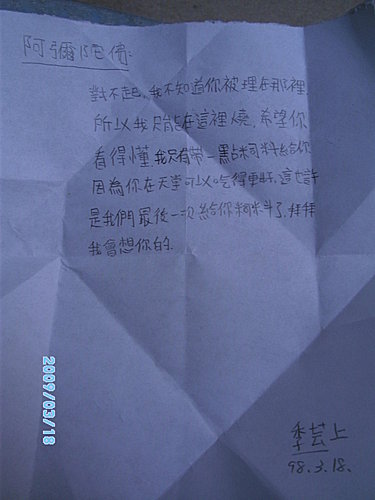 阿彌陀佛:
對不起,我不知道你被埋在那裡
所以我只能在這裡燒,希望你
看得懂我只有帶一點飼料給你
因為你在天堂可以吃得更好,這也許
是我們最後一次給你飼料了,拜拜
我會想你的.
季芸上
98.3.18.
2009/03/18